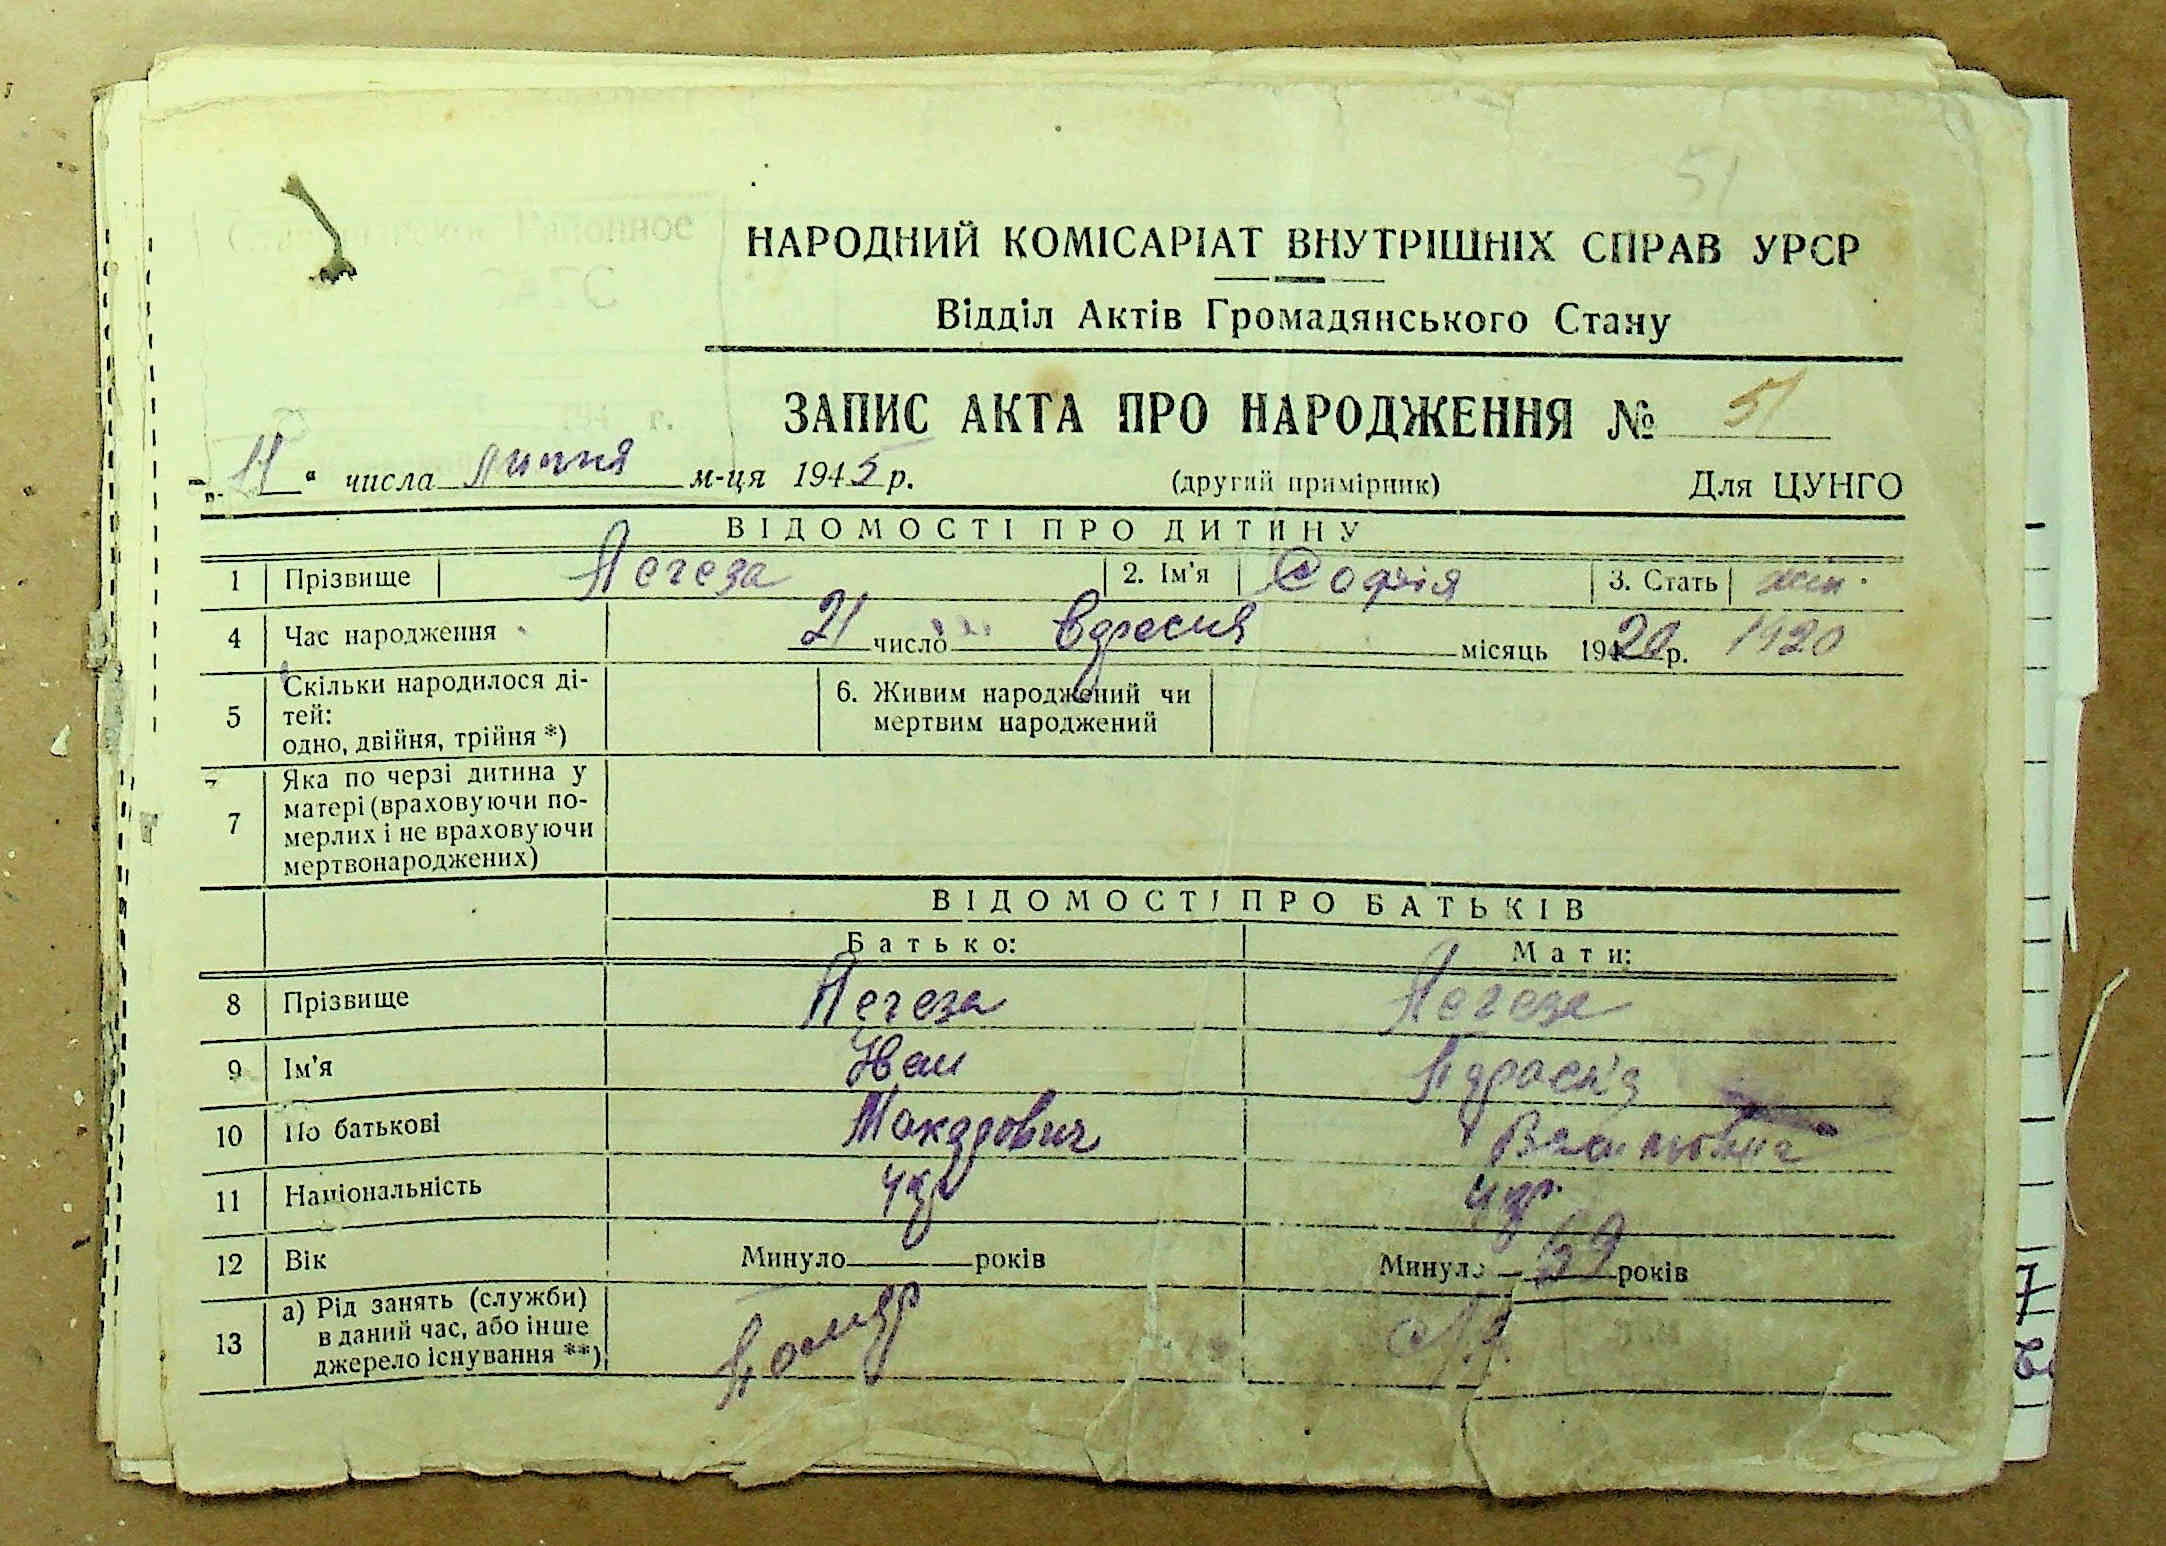 51
НАРОДНИЙ КОМІСАРІАТ ВНУТРІШНІХ СПРАВ УРСР
Відділ Актів Громадянського Стану
ЗАПИС АКТА ПРО НАРОДЖЕННЯ № 51
„11“ числа липня м-ця 1945 р. (другий примірник) Для ЦУНГО
ВІДОМОСТІ ПРО ДИТИНУ
1 Прізвище Легеза 2. Ім'я Софія 3. Стать жін.
4 Час народження 21 число вересня місяць 1920 р. 1920
5 Скільки народилося ді-
тей:
одно, двійня, трійня *)
6. Живим народжений чи
мертвим народжений
7 Яка по черзі дитина у
матері (враховуючи по-
мерлих і не враховуючи
мертвонароджених)
ВІДОМОСТІ ПРО БАТЬКІВ
Батько: Мати:
8 Прізвище Легеза Легеза
9 Ім'я Іван
10 По батькові Макарович
11 Національність укр укр.
12 Вік Минуло років Минуло 69 років
13 а) Рід занять (служби)
в даний час, або інше
джерело існування **)
помер